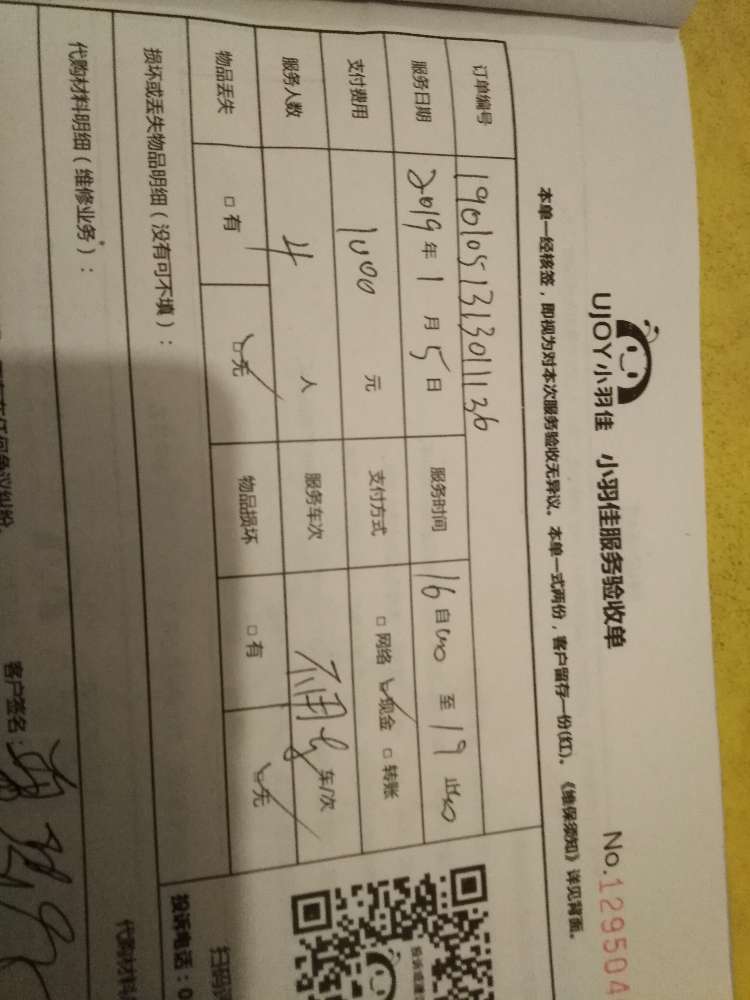 UJOY小羽佳 小羽佳服务验收单 No.129504
本单一经核签，即视为对本次服务验收无异议。本单一式两份，客户留存一份(红)。《维保须知》详见背面。
订单编号 1901051313011136
服务日期 2019年1月5日 服务时间 16自00至19止00
支付费用 1000元 支付方式 □网络 ☑现金 □转账
服务人数 4人 服务车次 不用车 车/次
物品丢失 □有 ☑无 物品损坏 □有 ☑无
损坏或丢失物品明细（没有可不填）：
代购材料明细（维修业务）：
代购材料
投诉电话：0
客户签名：